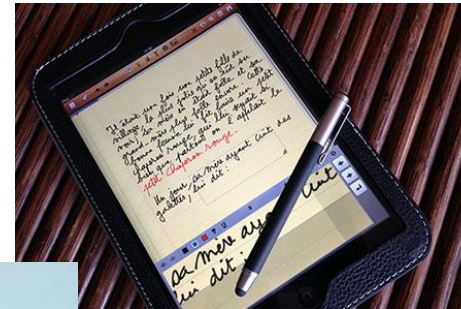 Il était une fois une petite fille de
village, la plus jolie qu'on eût su
voir; sa mère en était folle et sa
grand-mère plus folle encore. Cette
bonne femme lui fit faire un petit
chaperon rouge, qui lui seyait si
bien que partout on l'appelait le
petit Chaperon rouge.
Un jour, sa mère ayant cuit des
galettes, lui dit:
sa mère ayant cuit
lui dit: